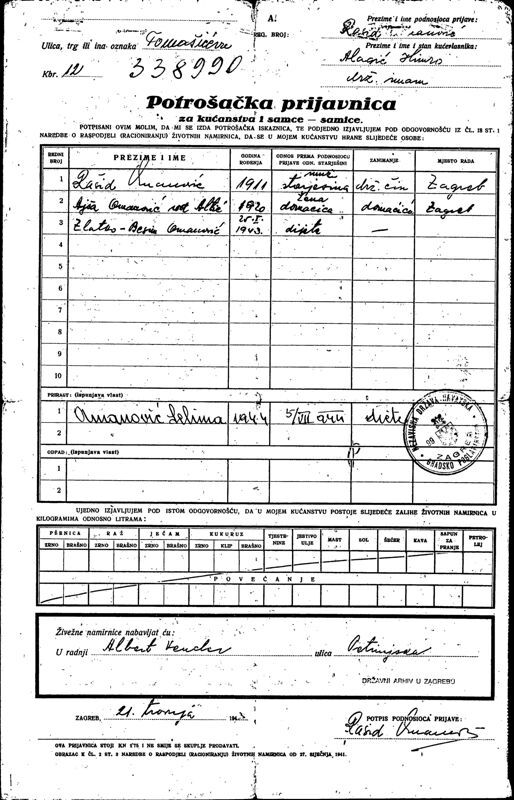 A:
REG. BROJ:
Prezime i ime podnosioca prijave:
Rašid Omanović
Ulica, trg ili ina oznaka Tomašićeva
Prezime i ime i stan kućevlasnika:
Alagić Himzo
Kbr. 12
338990
Potrošačka prijavnica
za kućanstva i samce — samice.
POTPISANI OVIM MOLIM, DA MI SE IZDA POTROŠAČKA ISKAZNICA, TE PODJEDNO IZJAVLJUJEM POD ODGOVORNOŠĆU IZ ČL. 18 ST. 1
NAREDBE O RASPODJELI (RACIONIRANJU) ŽIVOTNIH NAMIRNICA, DA SE U MOJEM KUĆANSTVU HRANE SLIJEDEĆE OSOBE:
REDNI BROJ PREZIME I IME GODINA ROĐENJA ODNOS PREMA PODNOSIOCU PRIJAVE ODN. STARJEŠINI ZANIMANJE MJESTO RADA
1 Rašid Omanović 1911 starješina drž. čin Zagreb
2 Ajša Omanović rođ 1920 žena domaćica domaćica Zagreb
3 Zlatko-Besim Omanović 1943. dijete —
4
5
6
7
8
9
10
PRIRAST: (ispunjava vlast)
1 Omanović Selima 1944 5/VII 944 dijete
2
NEZAVISNA DRŽAVA HRVATSKA
GRADSKO POGLAVARSTVO
ZAGREB
OTPAD: (ispunjava vlast)
1
2
UJEDNO IZJAVLJUJEM POD ISTOM ODGOVORNOŠĆU, DA U MOJEM KUĆANSTVU POSTOJE SLIJEDEĆE ZALIHE ŽIVOTNIH NAMIRNICA U
KILOGRAMIMA ODNOSNO LITRAMA:
PŠENICA RAŽ JEČAM KUKURUZ TJESTENINE JESTIVO ULJE MAST SOL ŠEĆER KAVA SAPUN ZA PRANJE PETROLEJ
ZRNO BRAŠNO ZRNO BRAŠNO ZRNO BRAŠNO ZRNO KLIP BRAŠNO
POVEĆANJE
Živežne namirnice nabavljat ću:
U radnji Albert ulica Petrinjska
DRŽAVNI ARHIV U ZAGREBU
ZAGREB, 21. travnja 194
POTPIS PODNOSIOCA PRIJAVE:
Rašid Omanović
OVA PRIJAVNICA STOJI KN 0'75 I NE SMIJE SE SKUPLJE PRODAVATI.
OBRAZAC K ČL. 2 ST. 2 NAREDBE O RASPODJELI (RACIONIRANJU) ŽIVOTNIH NAMIRNICA OD 27. SIJEČNJA 1941.